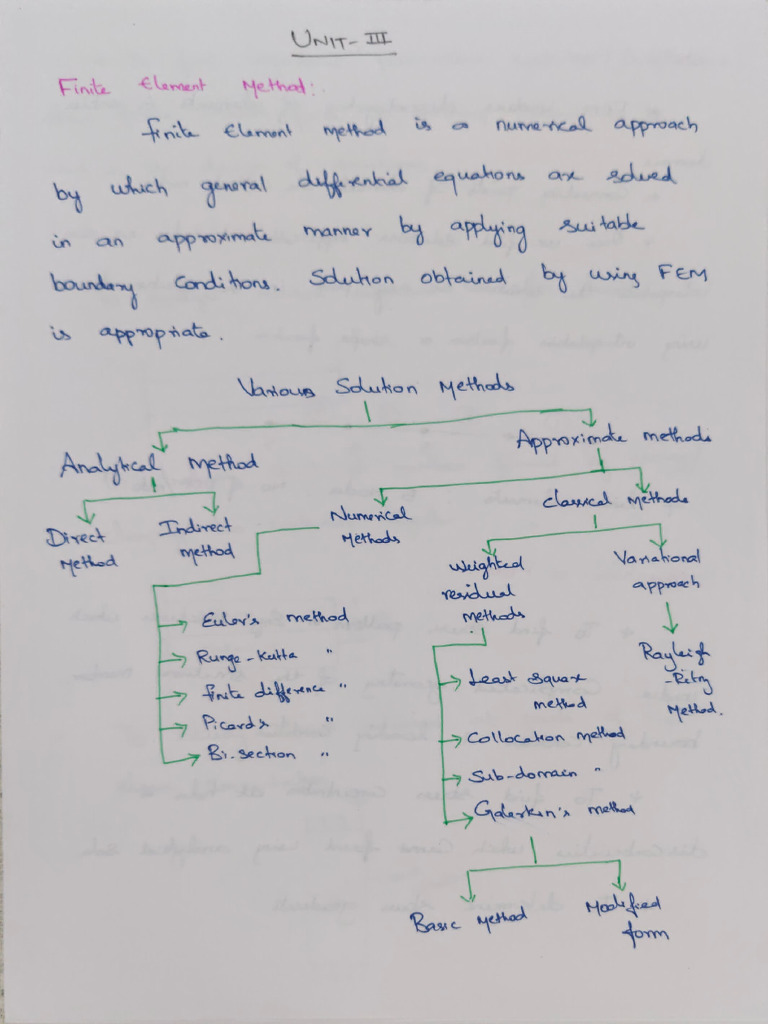 UNIT-III
Finite Element Method:
finite Element method is a numerical approach
by which general differential equations are solved
in an approximate manner by applying suitable
boundary Conditions. Solution obtained by using FEM
is appropriate.
Various Solution Methods
Analytical Method
Approximate methods
Direct
Method
Indirect
method
Numerical
Methods
classical Methods
Weighted
residual
methods
Variational
approach
Euler's method
Runge-Kutta "
finite difference "
Picard's "
Bi-section "
Rayleigh
-Ritz
Method.
Least square
method
Collocation method
Sub-domain "
Galerkin's method
Basic Method
Modified
form